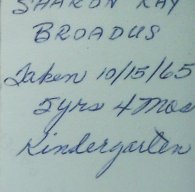 SHARON KAY
BROADUS
Taken 10/15/65
5yrs 4 Mos
Kindergarten